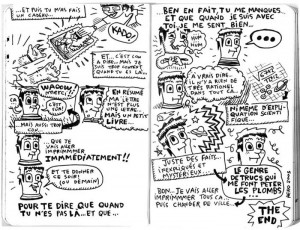 ...ET PUIS TU M'AS FAIT
UN CADEAU...
KADO!
ET... C'EST CON
À DIRE... MAIS JE
SUIS TROP CONTENT
QUAND TU ES LÀ...
WAOOW,
MERCI!!
...MAIS AUSSI TROP
CON...
EN RÉSUMÉ
LA LETTRE
N'EST PLUS
UNE LETTRE
MAIS UN PETIT
LIVRE...
...QUE JE
VAIS ALLER
IMPRIMMER
IMMMÉDIATEMENT!!
ET TE DONNER
CE SOIR!
(OU DEMAIN)
POUR TE DIRE QUE QUAND
TU N'ES PAS LÀ... ET QUE...
...BEN EN FAIT, TU ME MANQUES...
ET QUE QUAND JE SUIS AVEC
TOI, JE ME SENS BIEN...
À VRAI DIRE...
IL N'Y A RIEN DE
TRÈS RATIONEL
DANS TOUT ÇA...
NI MÊME D'EXPLI-
QUATION SCIENTI-
FIQUE...
JUSTE DES FAITS...
INEXPLIQUÉS ET
MYSTÉRIEUX...
LE GENRE
DE TRUCS QUI ME
FONT PÉTER
LES PLOMBS...
BON... JE VAIS ALLER
IMPRIMMER TOUS ÇA...
PUIS CHANGER DE VILLE...
THE
END